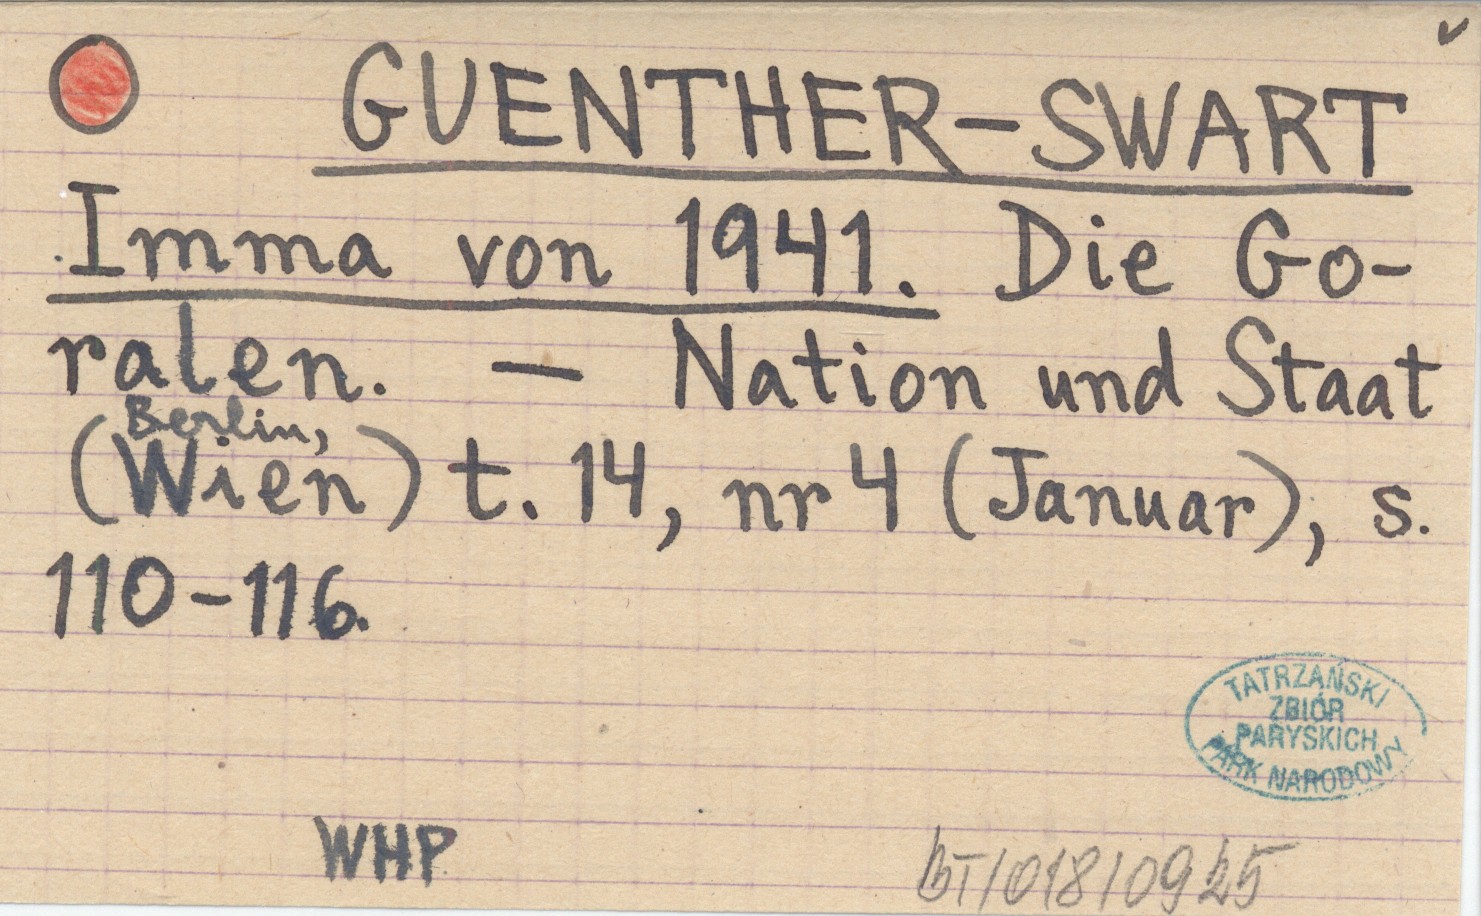 GUENTHER-SWART
Imma von 1941. Die Go-
ralen. — Nation und Staat
Berlin,
(Wien) t. 14, nr 4 (Januar), s.
110-116.
TATRZAŃSKI
ZBIÓR
PARYSKICH
PARK NARODOWY
WHP